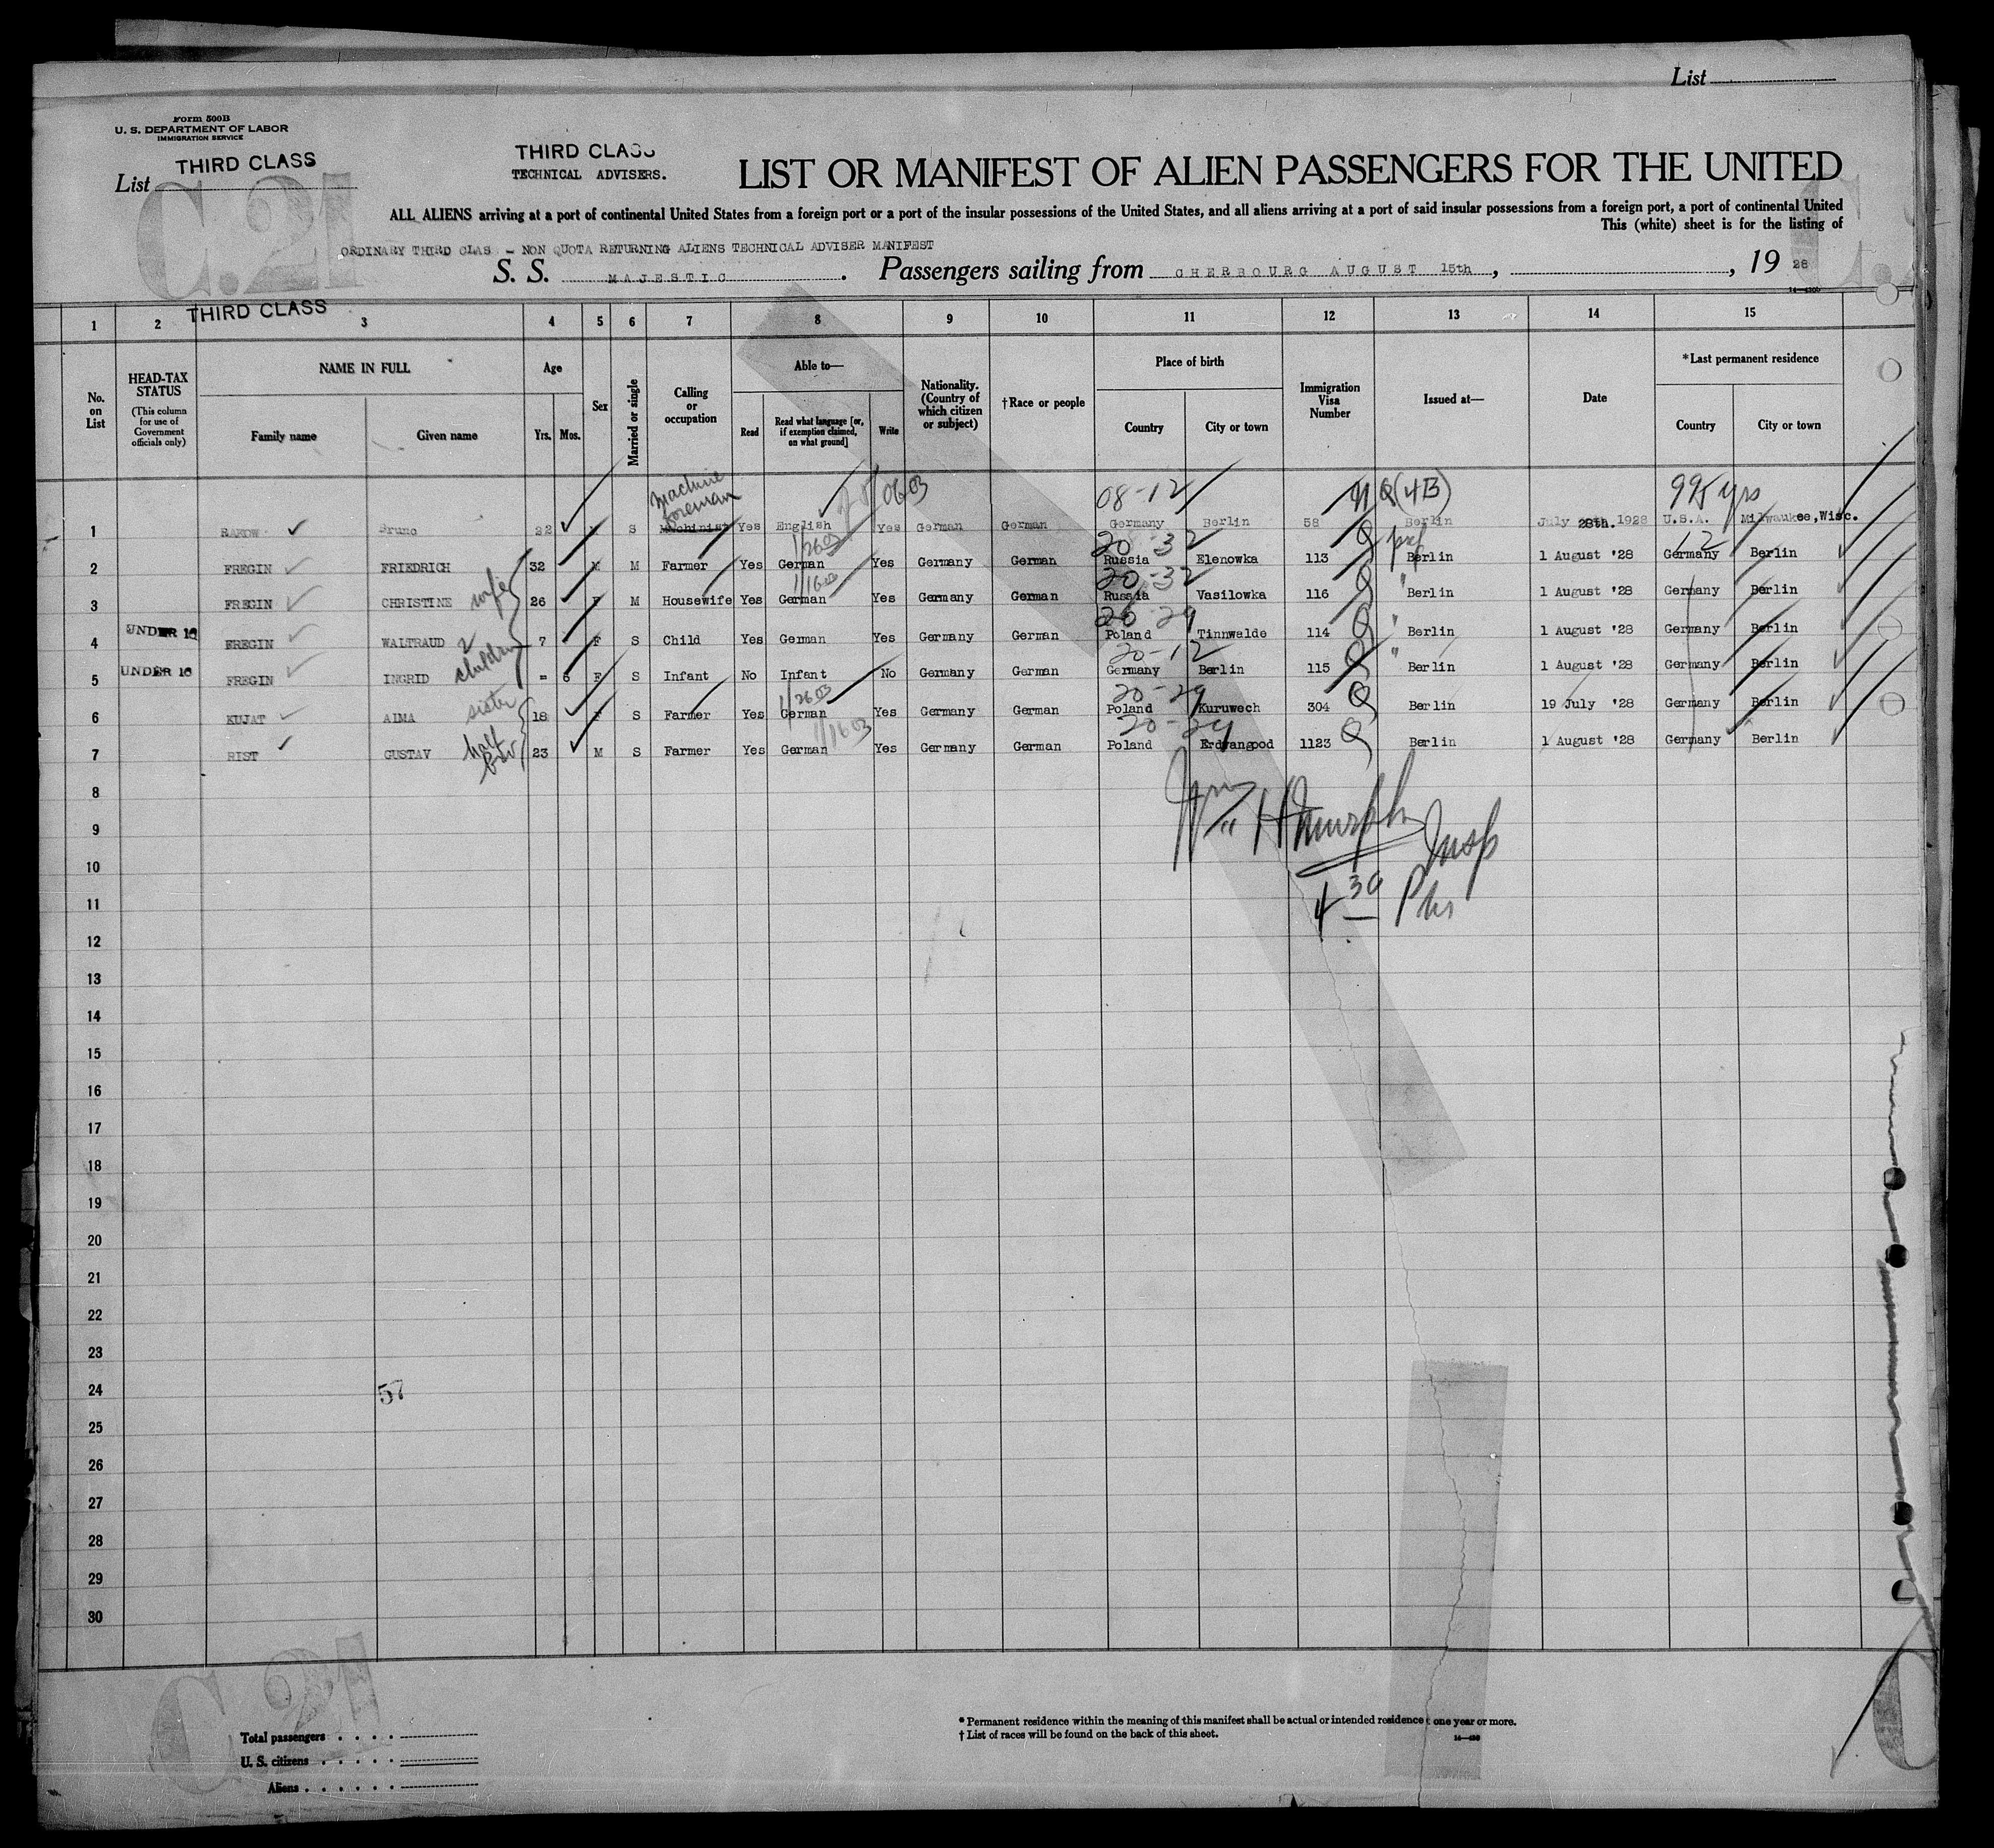 List
Form 500B
U. S. DEPARTMENT OF LABOR
IMMIGRATION SERVICE
List THIRD CLASS
THIRD CLASS
TECHNICAL ADVISERS.
LIST OR MANIFEST OF ALIEN PASSENGERS FOR THE UNITED
C.21
ALL ALIENS arriving at a port of continental United States from a foreign port or a port of the insular possessions of the United States, and all aliens arriving at a port of said insular possessions from a foreign port, a port of continental United
This (white) sheet is for the listing of
ORDINARY THIRD CLAS - NON QUOTA RETURNING ALIENS TECHNICAL ADVISER MANIFEST
S. S. MAJESTIC. Passengers sailing from CHERBOURG AUGUST 15th, , 19 28
THIRD CLASS
1 2 3 4 5 6 7 8 9 10 11 12 13 14 15
No. on List
HEAD-TAX STATUS (This column for use of Government officials only)
NAME IN FULL Family name Given name
Age Yrs. Mos.
Sex
Married or single
Calling or occupation
Able to— Read Read what language [or, if exemption claimed, on what ground] Write
Nationality. (Country of which citizen or subject)
†Race or people
Place of birth Country City or town
Immigration Visa Number
Issued at—
Date
*Last permanent residence Country City or town
machine foreman 0603 08-12 Q(4B) yrs
1 Bruno 22 S Machinist Yes English Yes German German Germany Berlin 58 Berlin July 28th. 1928 U.S.A. Milwaukee, Wisc.
12603 20-32 Q pref 12
2 FREGIN FRIEDRICH 32 M M Farmer Yes German Yes Germany German Russia Elenowka 113 Berlin 1 August '28 Germany Berlin
20-32 Q "
3 FREGIN CHRISTINE wife 26 F M Housewife Yes German Yes Germany German Russia Vasilowka 116 Berlin 1 August '28 Germany Berlin
20-29 Q "
4 UNDER 16 FREGIN WALTRAUD 2 children 7 F S Child Yes German Yes Germany German Poland Tinnwalde 114 Berlin 1 August '28 Germany Berlin
20-12 Q "
5 UNDER 16 FREGIN INGRID - 6 F S Infant No Infant No Germany German Germany Berlin 115 Berlin 1 August '28 Germany Berlin
12603 20-29 Q
6 KUJAT ALMA sister 18 F S Farmer Yes German Yes Germany German Poland Kuruwech 304 Berlin 19 July '28 Germany Berlin
11603 20-29 Q
7 RIST GUSTAV half 23 M S Farmer Yes German Yes Germany German Poland 1123 Berlin 1 August '28 Germany Berlin
8
9 Wm H Murphy Insp
10
11 4 30 PM
12
13
14
15
16
17
18
19
20
21
22
23
24 57
25
26
27
28
29
30
C.21
Total passengers
U. S. citizens
Aliens
* Permanent residence within the meaning of this manifest shall be actual or intended residence one year or more.
† List of races will be found on the back of this sheet.